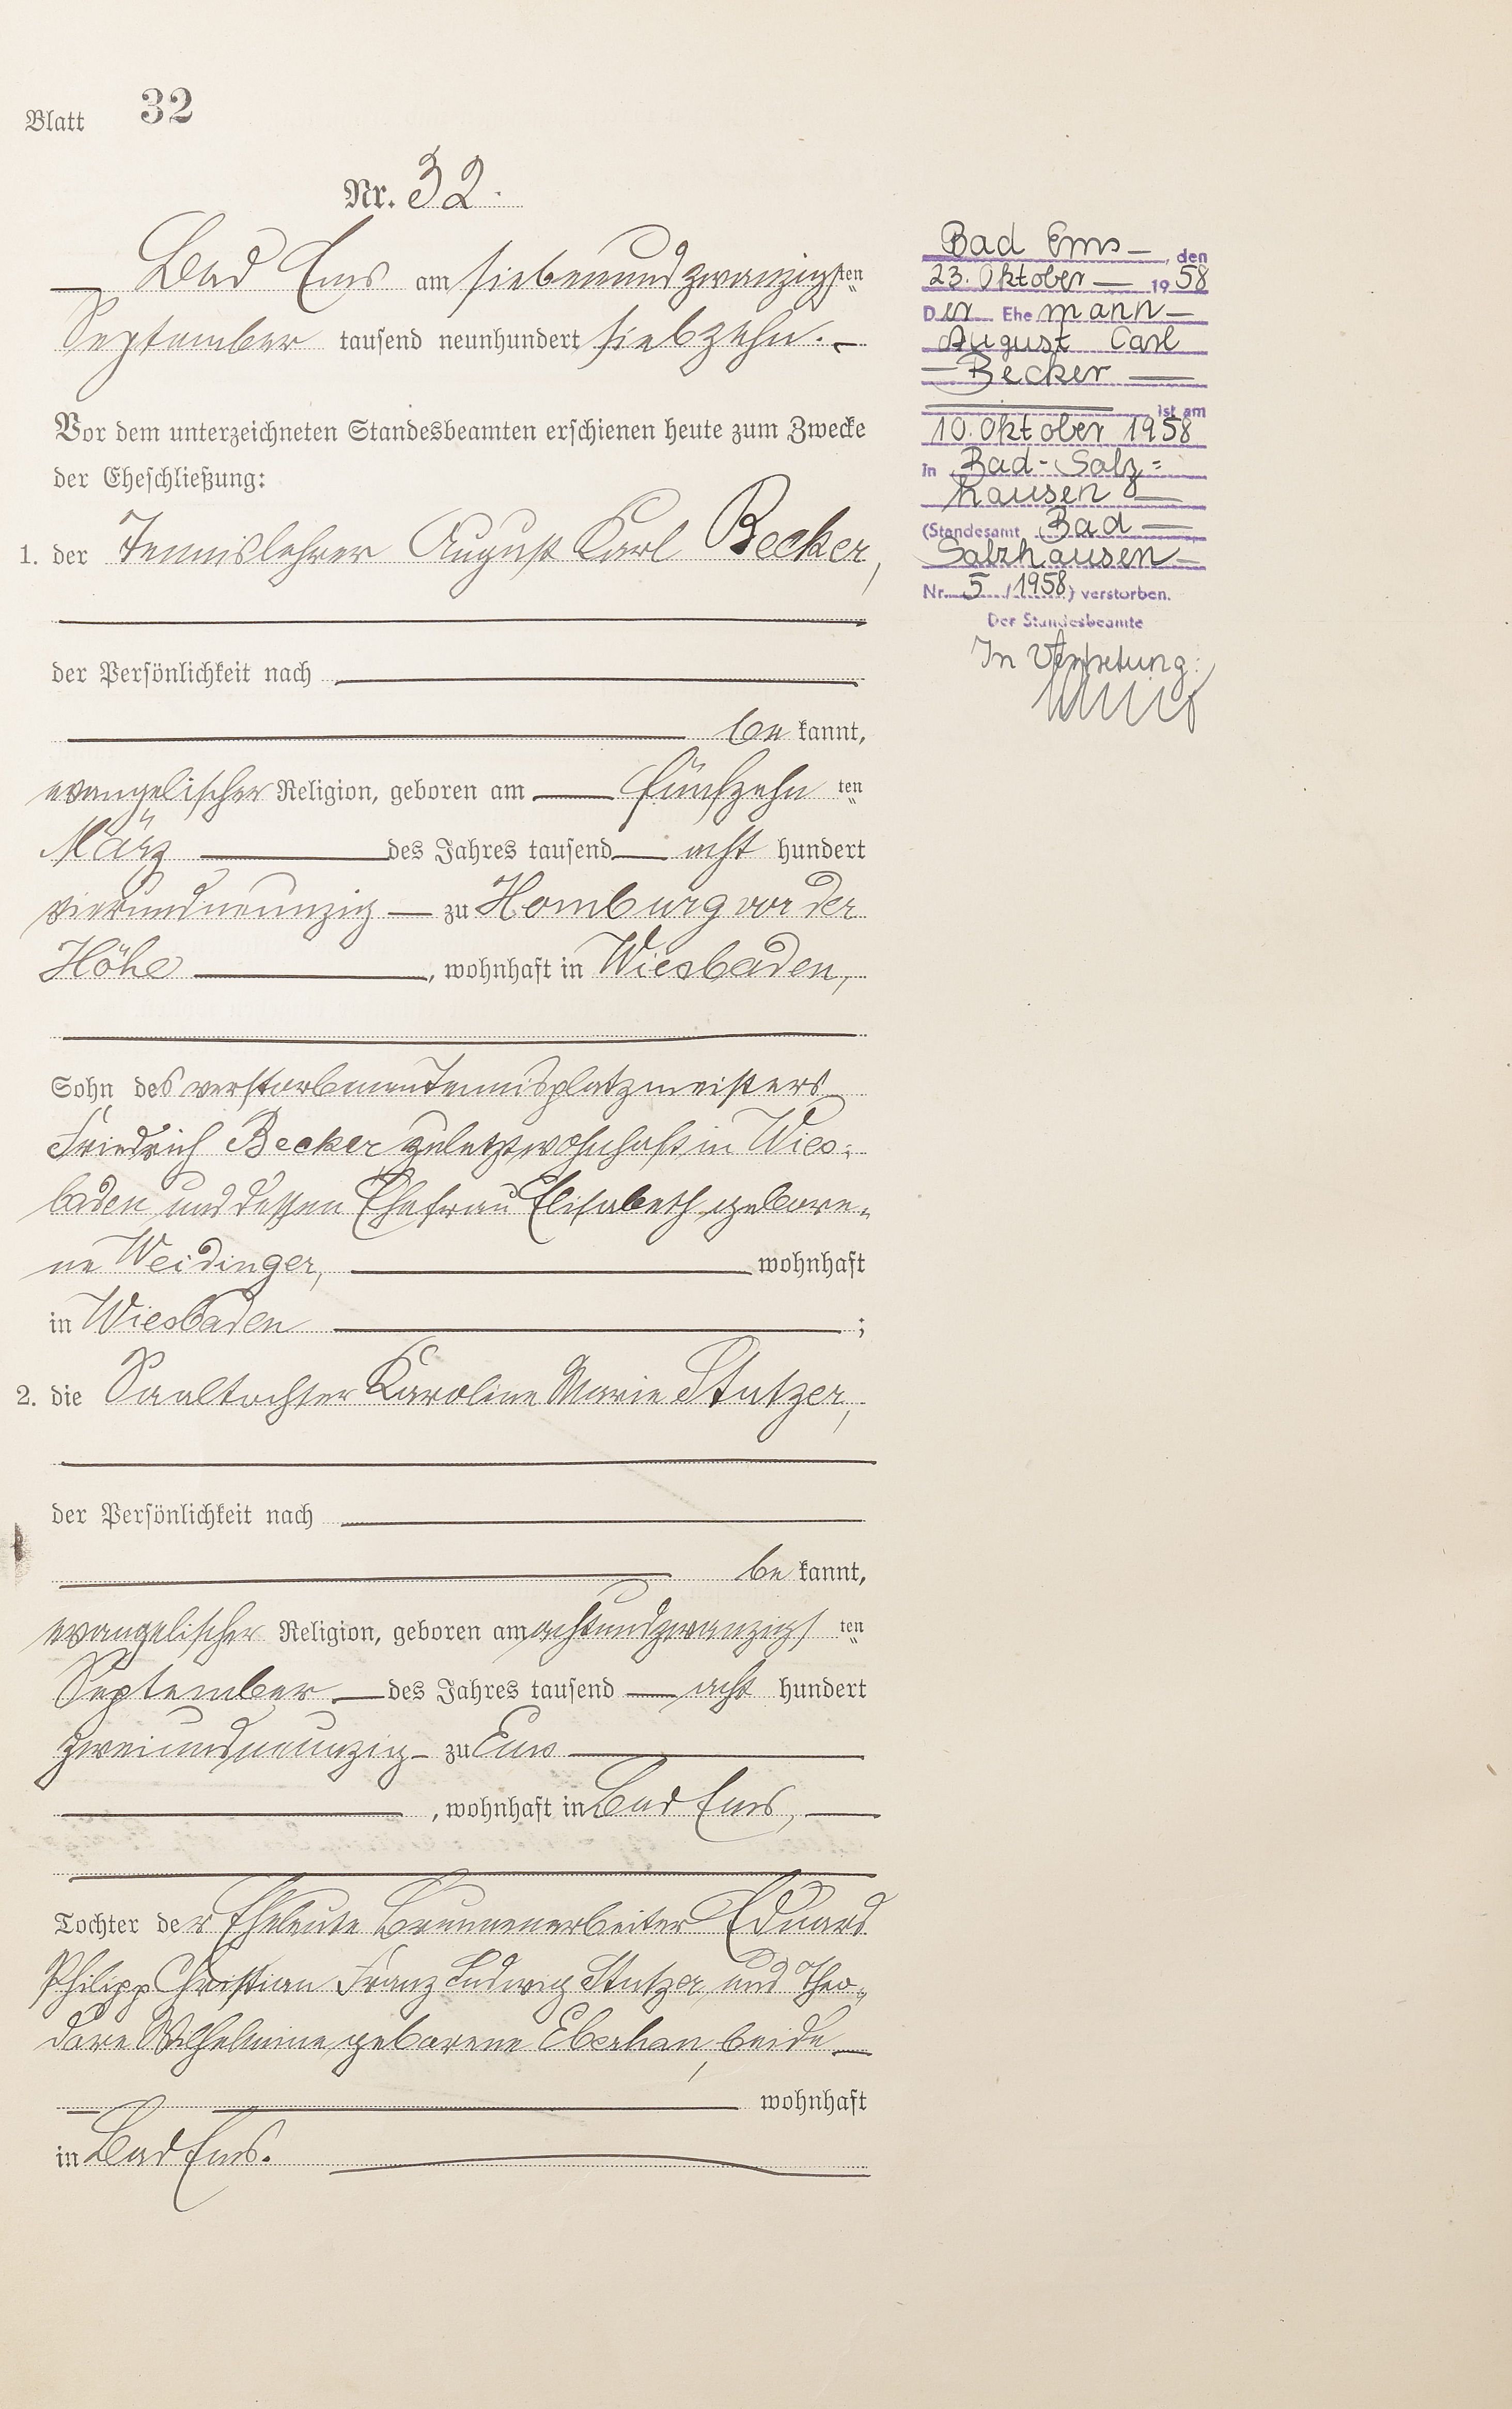 Blatt 32
Nr. 32.
Bad Ems am siebenundzwanzigsten
September tausend neunhundert siebzehn.
Vor dem unterzeichneten Standesbeamten erschienen heute zum Zwecke
der Eheschließung:
1. der Tennislehrer August Karl Becker,
der Persönlichkeit nach
be kannt,
evangelischer Religion, geboren am fünfzehn ten
März des Jahres tausend acht hundert
vierundneunzig zu Homburg vor der
Höhe, wohnhaft in Wiesbaden,
Sohn des verstorbenen Tennisplatzmeisters
Friedrich Becker zuletzt wohnhaft in Wies-
baden und dessen Ehefrau Elisabeth gebore-
ne Weidinger, wohnhaft
in Wiesbaden ;
2. die Saaltochter Karoline Marie Stutzer,
der Persönlichkeit nach
be kannt,
evangelischer Religion, geboren am achtundzwanzigs ten
September des Jahres tausend acht hundert
zweiundneunzig zu Ems
, wohnhaft in Bad Ems,
Tochter der Eheleute Brunnenarbeiter Eduard
Philipp Christian Franz Ludwig Stutzer und Theo-
dore Wilhelmine geborene Eberhan, beide
wohnhaft
in Bad Ems.
Bad Ems, den
23. Oktober 1958
Der Ehemann
August Carl
Becker
ist am
10. Oktober 1958
in Bad-Salz=
hausen
(Standesamt Bad
Salzhausen
Nr. 5 / 1958) verstorben.
Der Standesbeamte
In Vertretung: